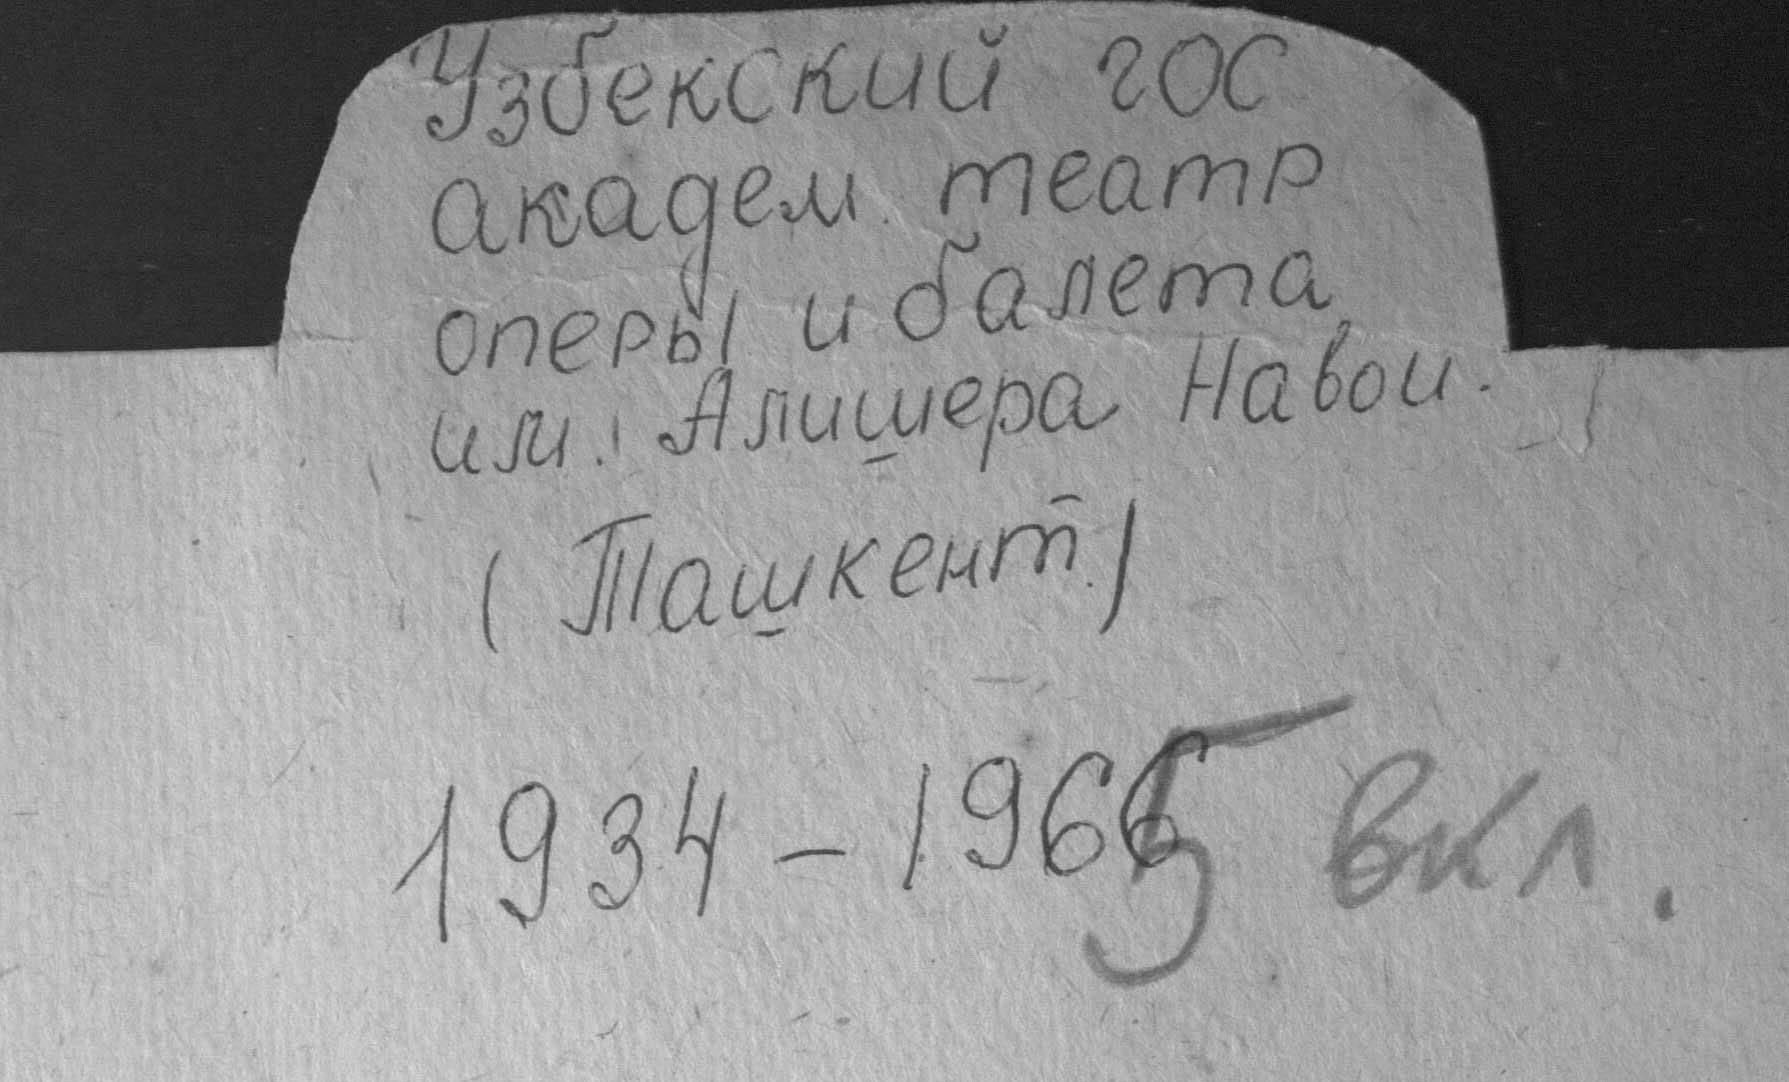 Узбекский гос
академ. театр
оперы и балета
им. Алишера Навои.
(Ташкент)
1934 – 1965 вкл.